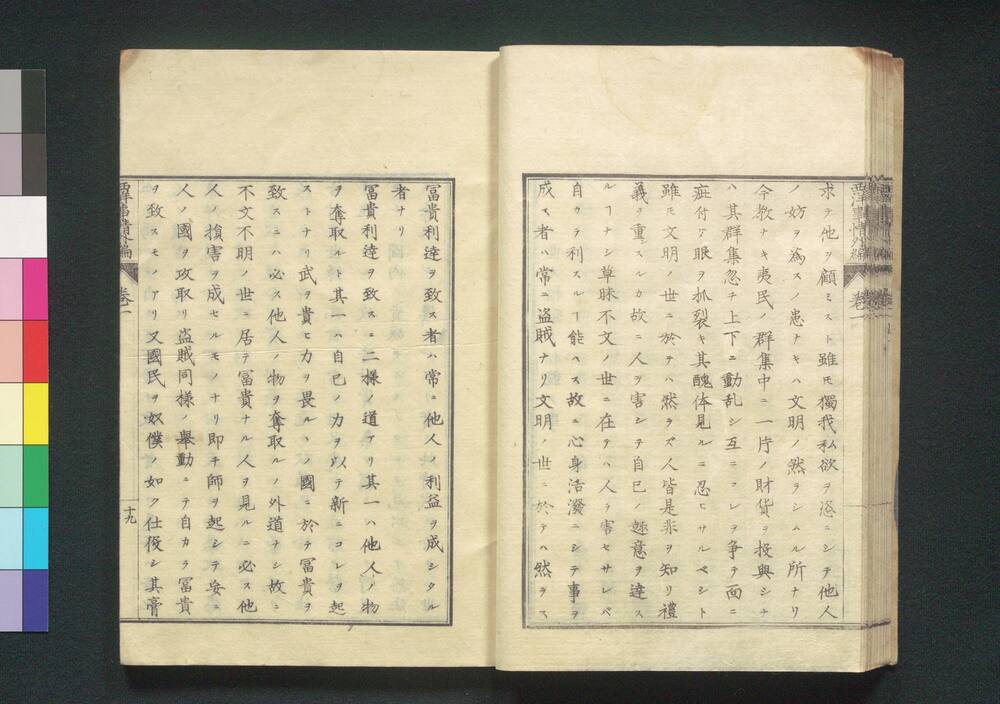 西洋事情外編 巻一
求テ他ヲ顧ミスト雖𪜈獨我私欲ヲ恣ニシテ他人
ノ妨ヲ為スノ患ナキハ文明ノ然ラシムル所ナリ
今教ナキ夷民ノ群集中ニ一片ノ財貨ヲ投與シナ
ハ其群集忽チ上下ニ動乱シ互ニコレヲ争テ面ニ
疵付ケ眼ヲ抓裂キ其醜体見ルニ忍ヒサルベシト
雖𪜈文明ノ世ニ於テハ然ラズ人皆是非ヲ知リ禮
義ヲ重スルカ故ニ人ヲ害シテ自己ノ趣意ヲ達ス
ルヿナシ草昧不文ノ世ニ在テハ人ヲ害セサレバ
自カラ利スルヿ能ハス故ニ心身活潑ニシテ事ヲ
成ス者ハ常ニ盗賊ナリ文明ノ世ニ於テハ然ラス
冨貴利達ヲ致ス者ハ常ニ他人ノ利益ヲ成シタル
者ナリ
冨貴利達ヲ致スニ二様ノ道アリ其一ハ他人ノ物
ヲ奪取ルト其一ハ自己ノ力ヲ以テ新ニコレヲ起
ストナリ武ヲ貴ヒ力ヲ畏ルヽノ國ニ於テ冨貴ヲ
致スニハ必ス他人ノ物ヲ奪取ルノ外道ナシ故ニ
不文不明ノ世ニ居テ冨貴ナル人ヲ見ルニ必ス他
人ノ損害ヲ成セルモノナリ即チ師ヲ起シテ妄ニ
人ノ國ヲ攻取リ盗賊同様ノ舉動ニテ自カラ冨貴
ヲ致スモノアリ又國民ヲ奴僕ノ如ク仕役シ其膏
西洋事情外編 巻一
十九